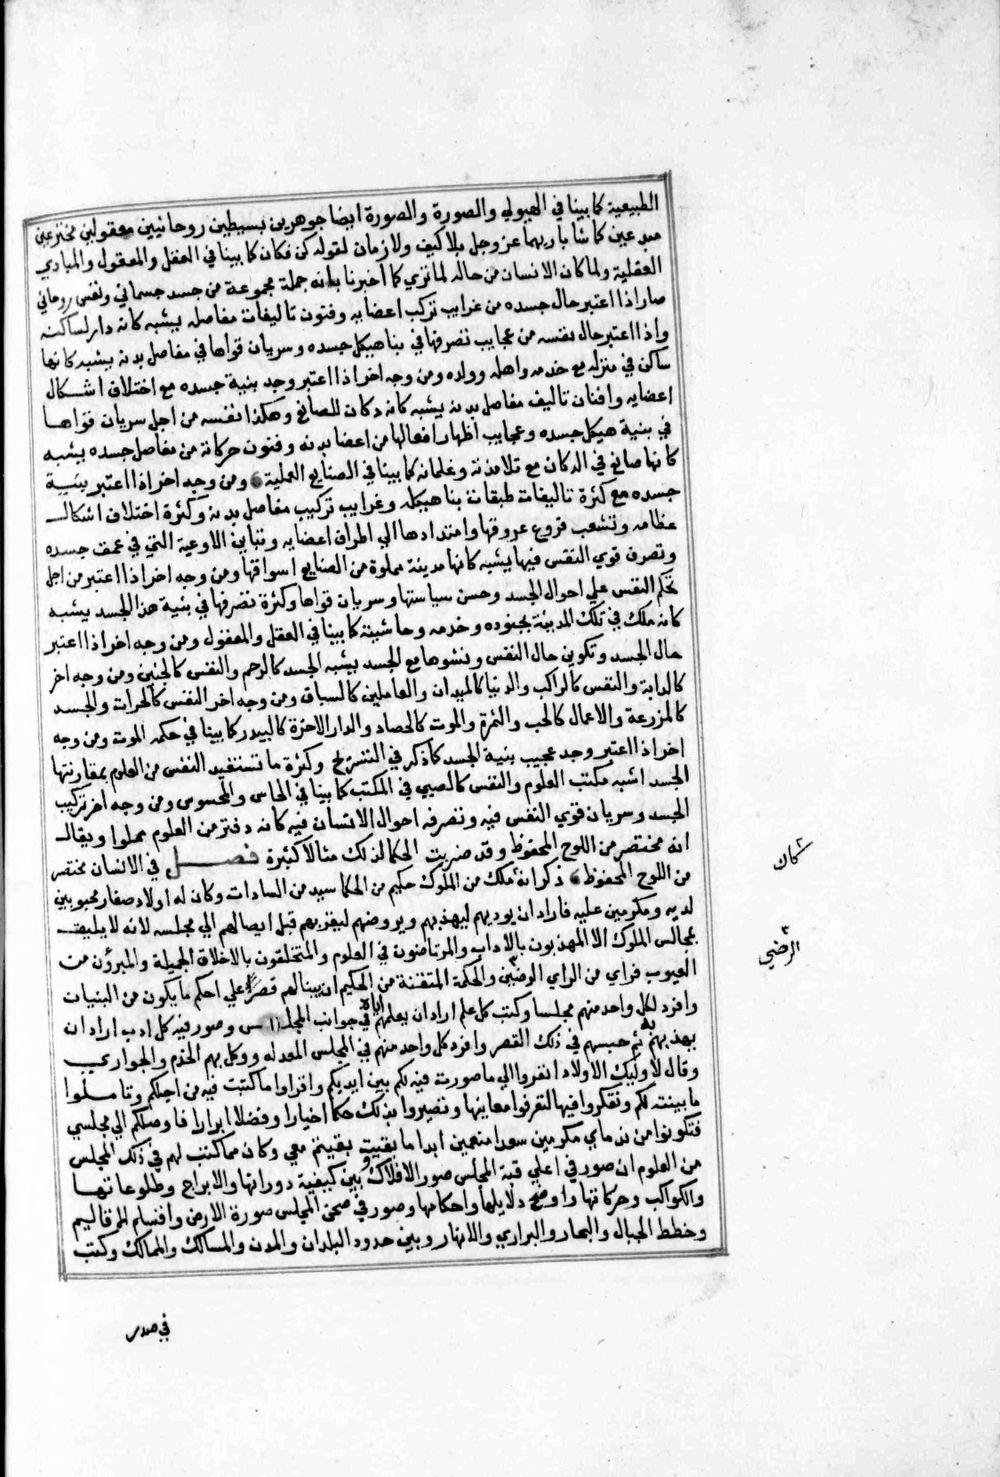 الطبيعية كما بينا في الهيولي والصورة والصورة ايضا جوهرين بسيطين روحانيين معقولين مخترعين
مبدعين كما شا باريهما عز وجل بلا كيف ولا زمان لقوله كن فكان كما بينا في العقل والمعقول والمبادي
العقلية ولما كان الانسان من حاله لما نري كما اخبرنا بانه جملة مجموعة من جسد جسماني ونفس روحاني
صار اذا اعتبر حال جسده من غرايب تركب اعضايه وفنون تاليفات مفاصله يشبه كانه دار لساكنه
واذا اعتبر حال نفسه من عجايب تصرفها في بنا هيكل جسده وسريان قواها في مفاصل بدنه يشبه كانها
ساكن في منزله مع خدمه واهله وولده ومن وجه اخر اذا اعتبر وجد بنية جسده مع اختلاف اشكال
اعضايه وافنان تاليف مفاصل بدنه يشبه كانه دكان للصانع وهكذا نفسه من اجل سريان قواها
في بنية هيكل جسده وعجايب اظهار افعالها من اعضا بدنه وفنون حركاته من مفاصل جسده يشبه
كانها صانع في الدكان مع تلامذته وغلمانه كما بينا في الصنايع العملية ومن وجه اخر اذا اعتبر بنية
جسده مع كثرة تاليفات طبقات بنا هيكله وغرايب تركيب مفاصل بدنه وكثرة اختلاف اشكال
عظامه وتشعب فروع عروقها وامتدادها الي اطراف اعضايه وتباين الاوعية التي في عمق جسده
وتصرف قوي النفس فيها يشبه كانها مدينة مملوة من الصنايع اسواقها ومن وجه اخر اذا اعتبر من اجل
تحكم النفس علي احوال الجسد وحسن سياستها وسريان قواها وكثرة تصرفها في بنية هذا الجسد يشبه
كانه ملك في تلك المدينة بجنوده وخدمه وحاشيته كما بينا في العقل والمعقول ومن وجه اخر اذا اعتبر
حال الجسد وتكوين حال النفس ونشوها مع الجسد يشبه الجسد كالرحم والنفس كالجنين ومن وجه اخر
كالدابة والنفس كالراكب والدنيا كالميدان والعاملين كالسباق ومن وجه اخر النفس كالحراث والجسد
كالمزرعة والاعمال كالحب والثمرة والموت كالحصاد والدار الاخرة كالبيدر كما بينا في حكمه الموت ومن وجه
اخر اذا اعتبر وجد عجيب بنية الجسد كما ذكر في التشريح وكثرة ما تستفيد النفس من العلوم بمقارنتها
الجسد اشبه مكتب العلوم والنفس كالصبي في المكتب كما بينا في الحاس والمحسوس ومن وجه اخر تركيب
الجسد وسريان قوي النفس فيه وتصرفه احوال الانسان فيه كانه دفتر من العلوم مملوا ويقال
انه مختصر من اللوح المحفوظ وقد ضربت الحكما لذلك مثالا كثيرة فصل في الانسان مختصر
من اللوح المحفوظ ذكر انه ملك من الملوك حكيم من الحكما سيد من السادات وكان له اولاد صغار محبوبين
لديه ومكرمين عليه فاراد ان يوديهم ليهذبهم ويروضهم ليقربهم قبل ايصالهم الي مجلسه لانه لا يليق
بمجالس الملوك الا المهذبون بالاداب والمرتاضون في العلوم والمتخلقون بالاخلاق الجميلة والمبرؤن من
العيوب فراي من الراي الرضين والحكمة المتقنة من الحكيم ان يبنا لهم قصرا علي احكم ما يكون من البنيات
وافرد لكل واحد منهم مجلسا وكتب كل علم اراد ان يعلمهم اياه في جوانب المجلس وصور فيه كل ادب اراد ان
يهذبهم به ثم حبسهم في ذلك القصر وافرد كل واحد منهم في المجلس المعد له ووكل بهم الخدم والجواري
وقال لاوليك الاولاد انظروا الي ما صورت فيه لكم بين ايديكم واقراوا ما كتبت فيه من اجلكم وتاملوا
ما بينته لكم وتفكروا فيها لتعرفوا معاينها وتصيروا بذلك حكما اخيارا وفضلا ابرارا فاوصلكم الي مجلسي
فتكونوا من ندماي مكرمين سعدا منعمين ابدا ما بقيت بقيتم معي وكان مما كتب لهم في ذلك المجلس
من العلوم ان صور في اعلي قبة المجلس صور الافلاك وبين كيفية دورانها والابراج وطلوعاتها
والكواكب وحركاتها واوضح دلايلها واحكامها وصور في صحن المجلس صورة الارض واقسام الاقاليم
وخطط الجبال والبحار والبراري والانهار وبين حدود البلدان والمدن والمسالك والممالك وكتب
في صدر
كان
الرضي